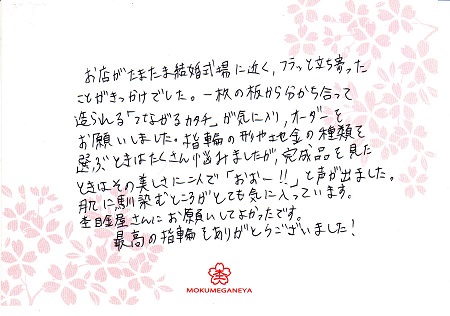 お店がたまたま結婚式場に近く、フラッと立ち寄った
ことがきっかけでした。一枚の板から分かち合って
造られる「つながるカタチ」が気に入り、オーダーを
お願いしました。指輪の形や地金の種類を
選ぶときはたくさん悩みましたが、完成品を見た
ときはその美しさに二人で「おぉー!!」と声が出ました。
肌に馴染むところがとても気に入っています。
杢目金屋さんにお願いしてよかったです。
最高の指輪をありがとうございました!
MOKUMEGANEYA